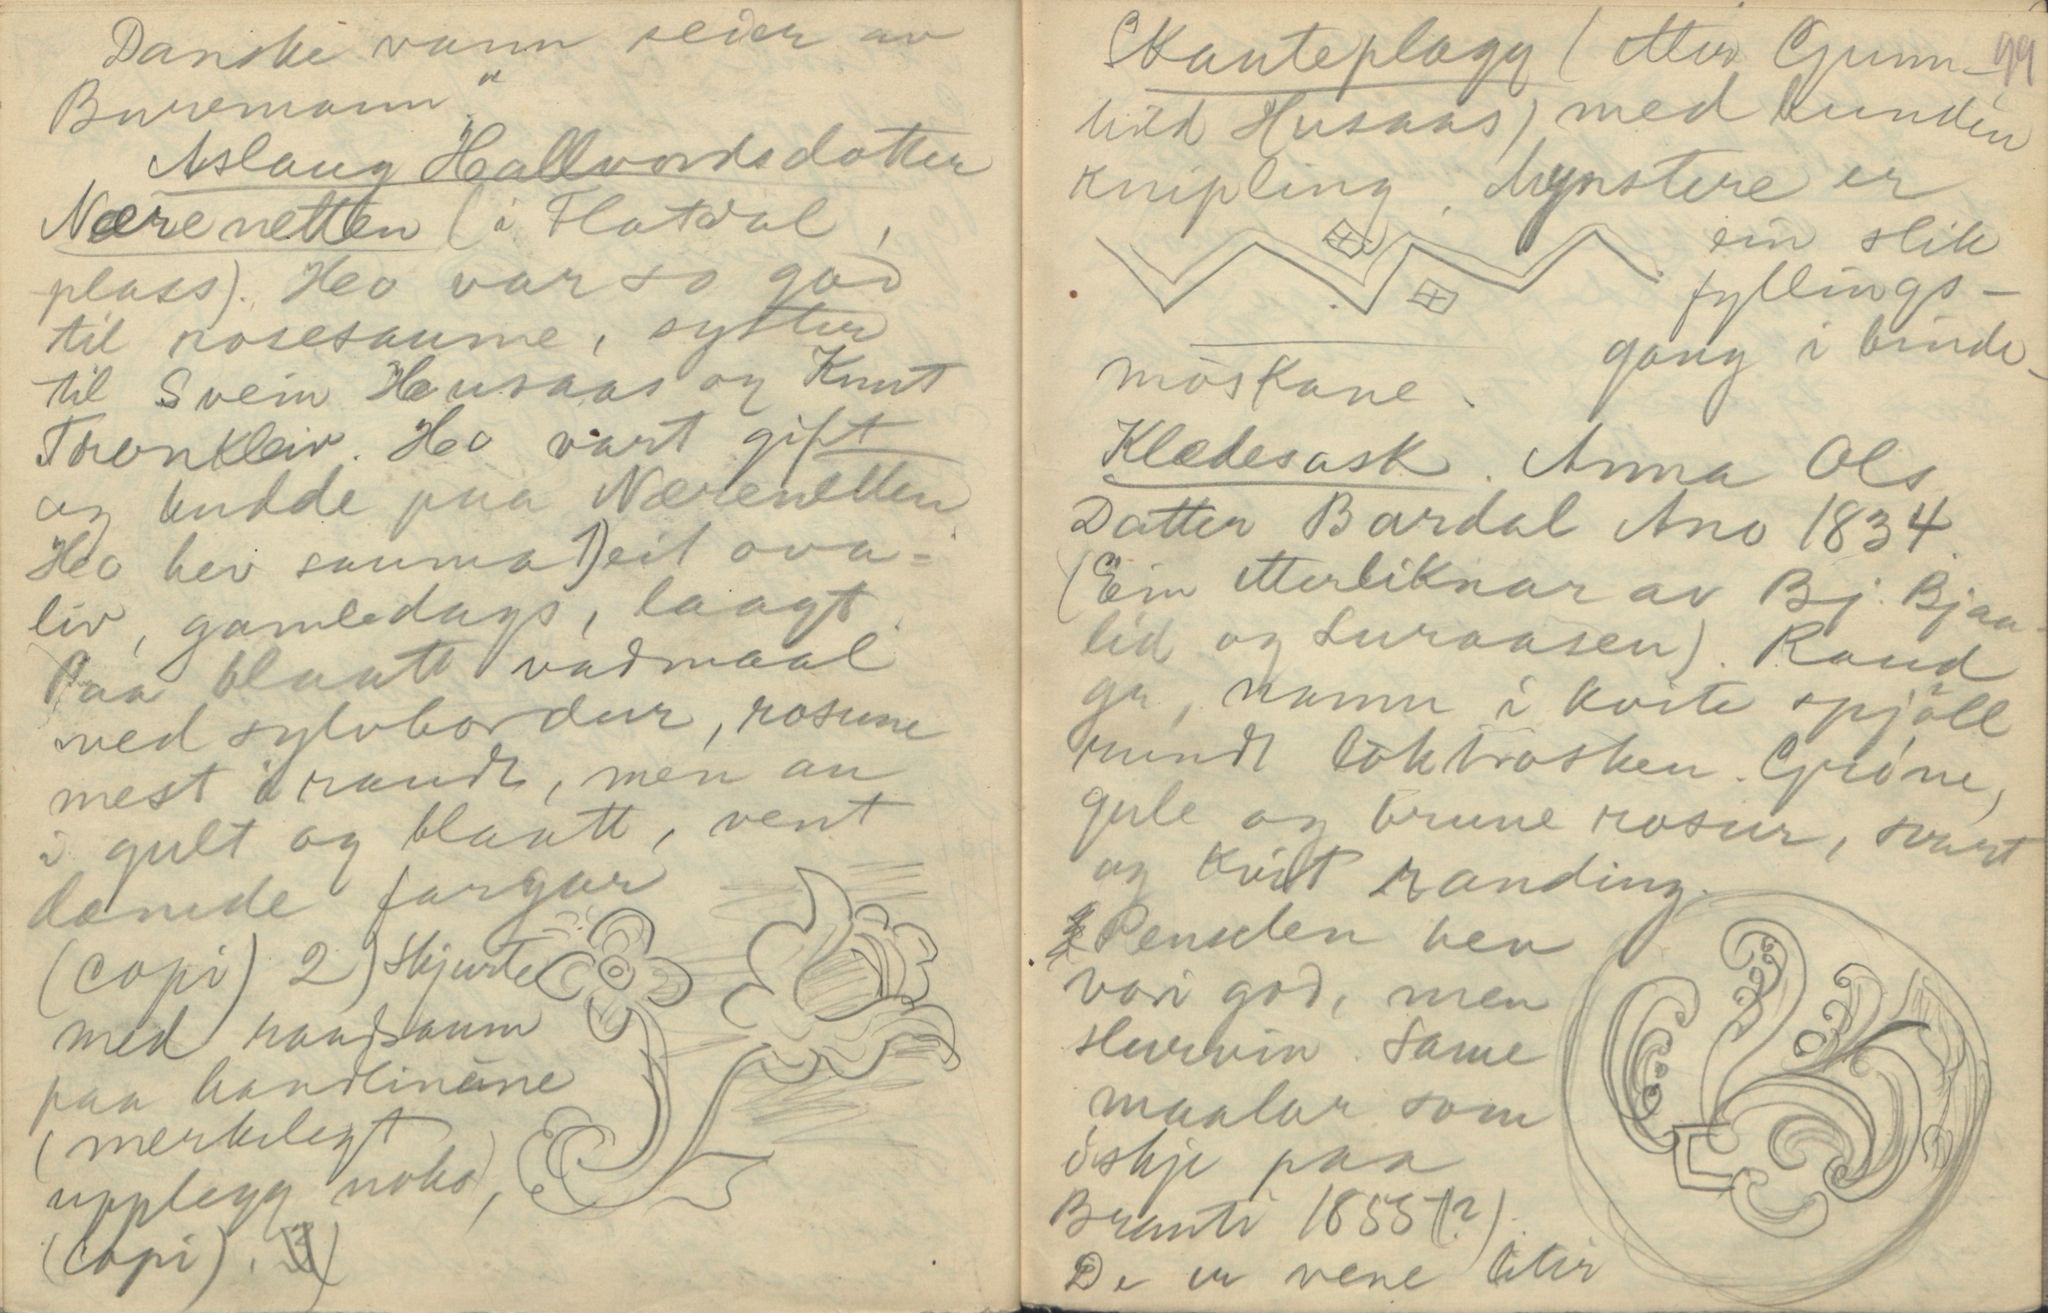 Danske vann seier av
Buremann".
Aslaug Hallvordsdotter
Nærenetten (i Flatdal,
plass). Ho var so god
til rosesaume, syster
til Svein Husaas og Knut
Tronkleiv. Ho vart gift
og budde paa Nærenetten
Ho hev sauma 1) eit ova-
liv, gamledags, laagt.
Paa blaatt vadmaal
med sylvbordur, rosune
mest i raudt, men au
i gult og blaatt, vent
dømde fargar
(copi) 2) Skjurte
med raudsaum
paa handlinène
(merkelegt
upplegg noko),
(copi). 3)
99
Skauteplagg (etter Gunn-
hild Husaas) med bunden
knipling. Mynstere er
ein slik
fyllings-
gang i binde-
möskane.
Klædesask. Anna Ols
Datter Bardal Ano 1834.
(Ein etterliknar av Bj. Bjaa-
lid og Luraasen). Raud
gr, namn i kvite spjöll
rundt lokkrosken. Gröne,
gule og brune rosur, svart
og kvit randing.
Penselen hev
vori god, men
slurvin. Same
maalar som
öskje paa
Branti 1855(?).
De er vene etter